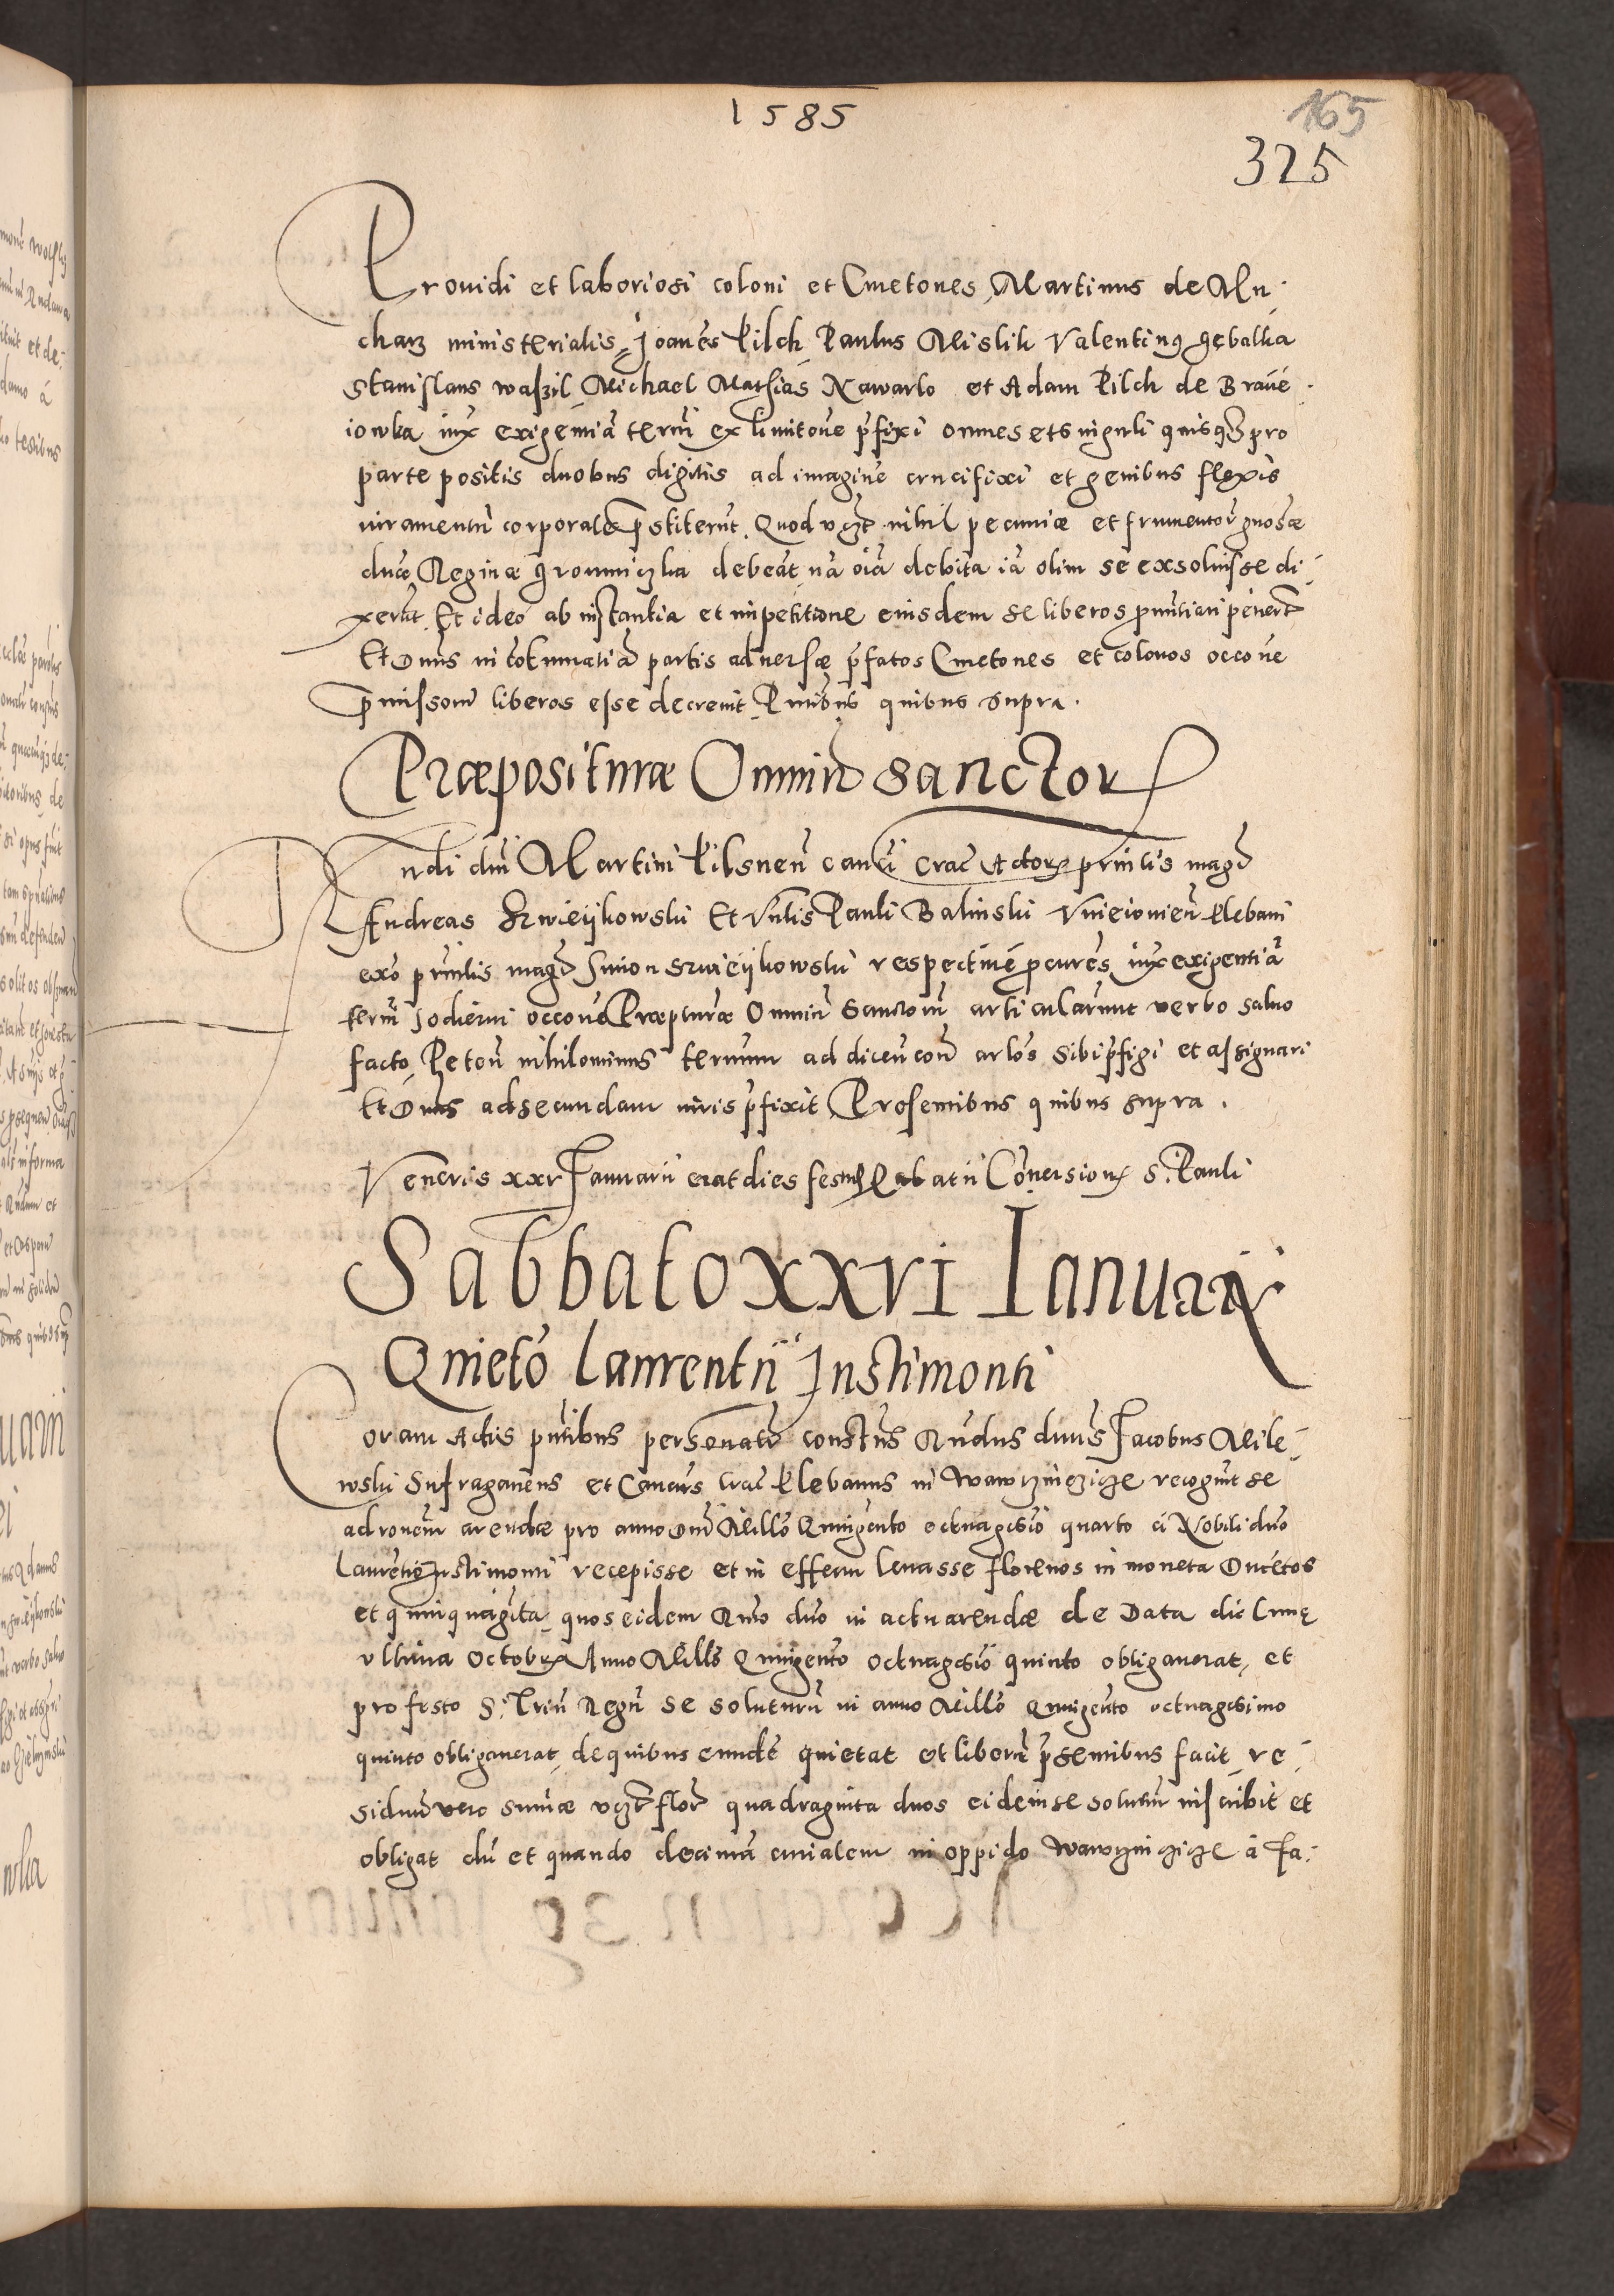 1585
165
325
Prouidi et laboriosi coloni et Cmetones Martinus de Mu
charz ministerialis Joanes Pilch Paulus Mislik Valentinus gębalka
Stanislaus waszil Michael Mathias Nawarlo et Adam Pilch de
iowka iux exigentiā termi ex limitone pfixi omnes et singuli quisq pro
parte positis duobus digitis ad imaginē crucifixi et genibus flexis
iuramentū corporale pstiterūt. Quod vczt nihil pecuniæ et frumentor gnosæ
dnæ Reginæ debeāt nā oīa debita iā olim se exsoluisse di
xerūt. Et ideo ab instantia et impetitione eiusdem se liberos pnūtiari
Et Dnus in cōtumatiā partis aduersæ pfatos Cmetones et colonos occone
pmissorū liberos esse decreuit Pntibus quibus supra.
Præpositurae Omniū Sanctor
Rndi dni Martini Pilsnen canci Crac Actor prinlis magr
Andreas Zwieijkowski Et Vnlis Pauli Balinski Vnieiouien Plebani
exo prinlis magr Simon Szwieijkowski respectiuē pcures iux exigentiā
termi hodierni occone Præpturæ Omniū Sanctorū articularunt verbo saluo
facto Peton nihilominus termum ad dicen con arlos sibi pfigi et assignari
Et Dnus ad secundam iuris pfixit Præsentibus quibus supra.
Veneris xxv Januarii erat dies Conersion S. Pauli
Sabbato xxvi Ianuarii
Quieto Laurentii Justimonti
Coram Actis pntibus personalr constūs Rndus dnus Jacobus Mile
wski Sufraganeus et Cancus Crac Plebanus in Wawrzinczicze recognit se
ad ronem arendæ pro anno Dni Millo Quingento octuagesīo quarto a Nobili dno
Laurentio Justimonti recepisse et in effectu leuasse florenos in moneta Ducētos
et quinquagita quos eidem Rndo dno in actu arendæ de Data die Lunę
vltima Octobr Anno Millo Quingento octuagesīo quinto obligauerat, et
pro festo S. Triū Regū se soluturū in anno Millo Quingento octuagesimo
quinto obligauerat, de quibus eundē quietat et liberū psentibus facit, re
siduū vero summæ vczt flor quadraginta duos eidem se solutur inscribit et
obligat dū et quando decimā in oppido Wawrzinczicze a fa